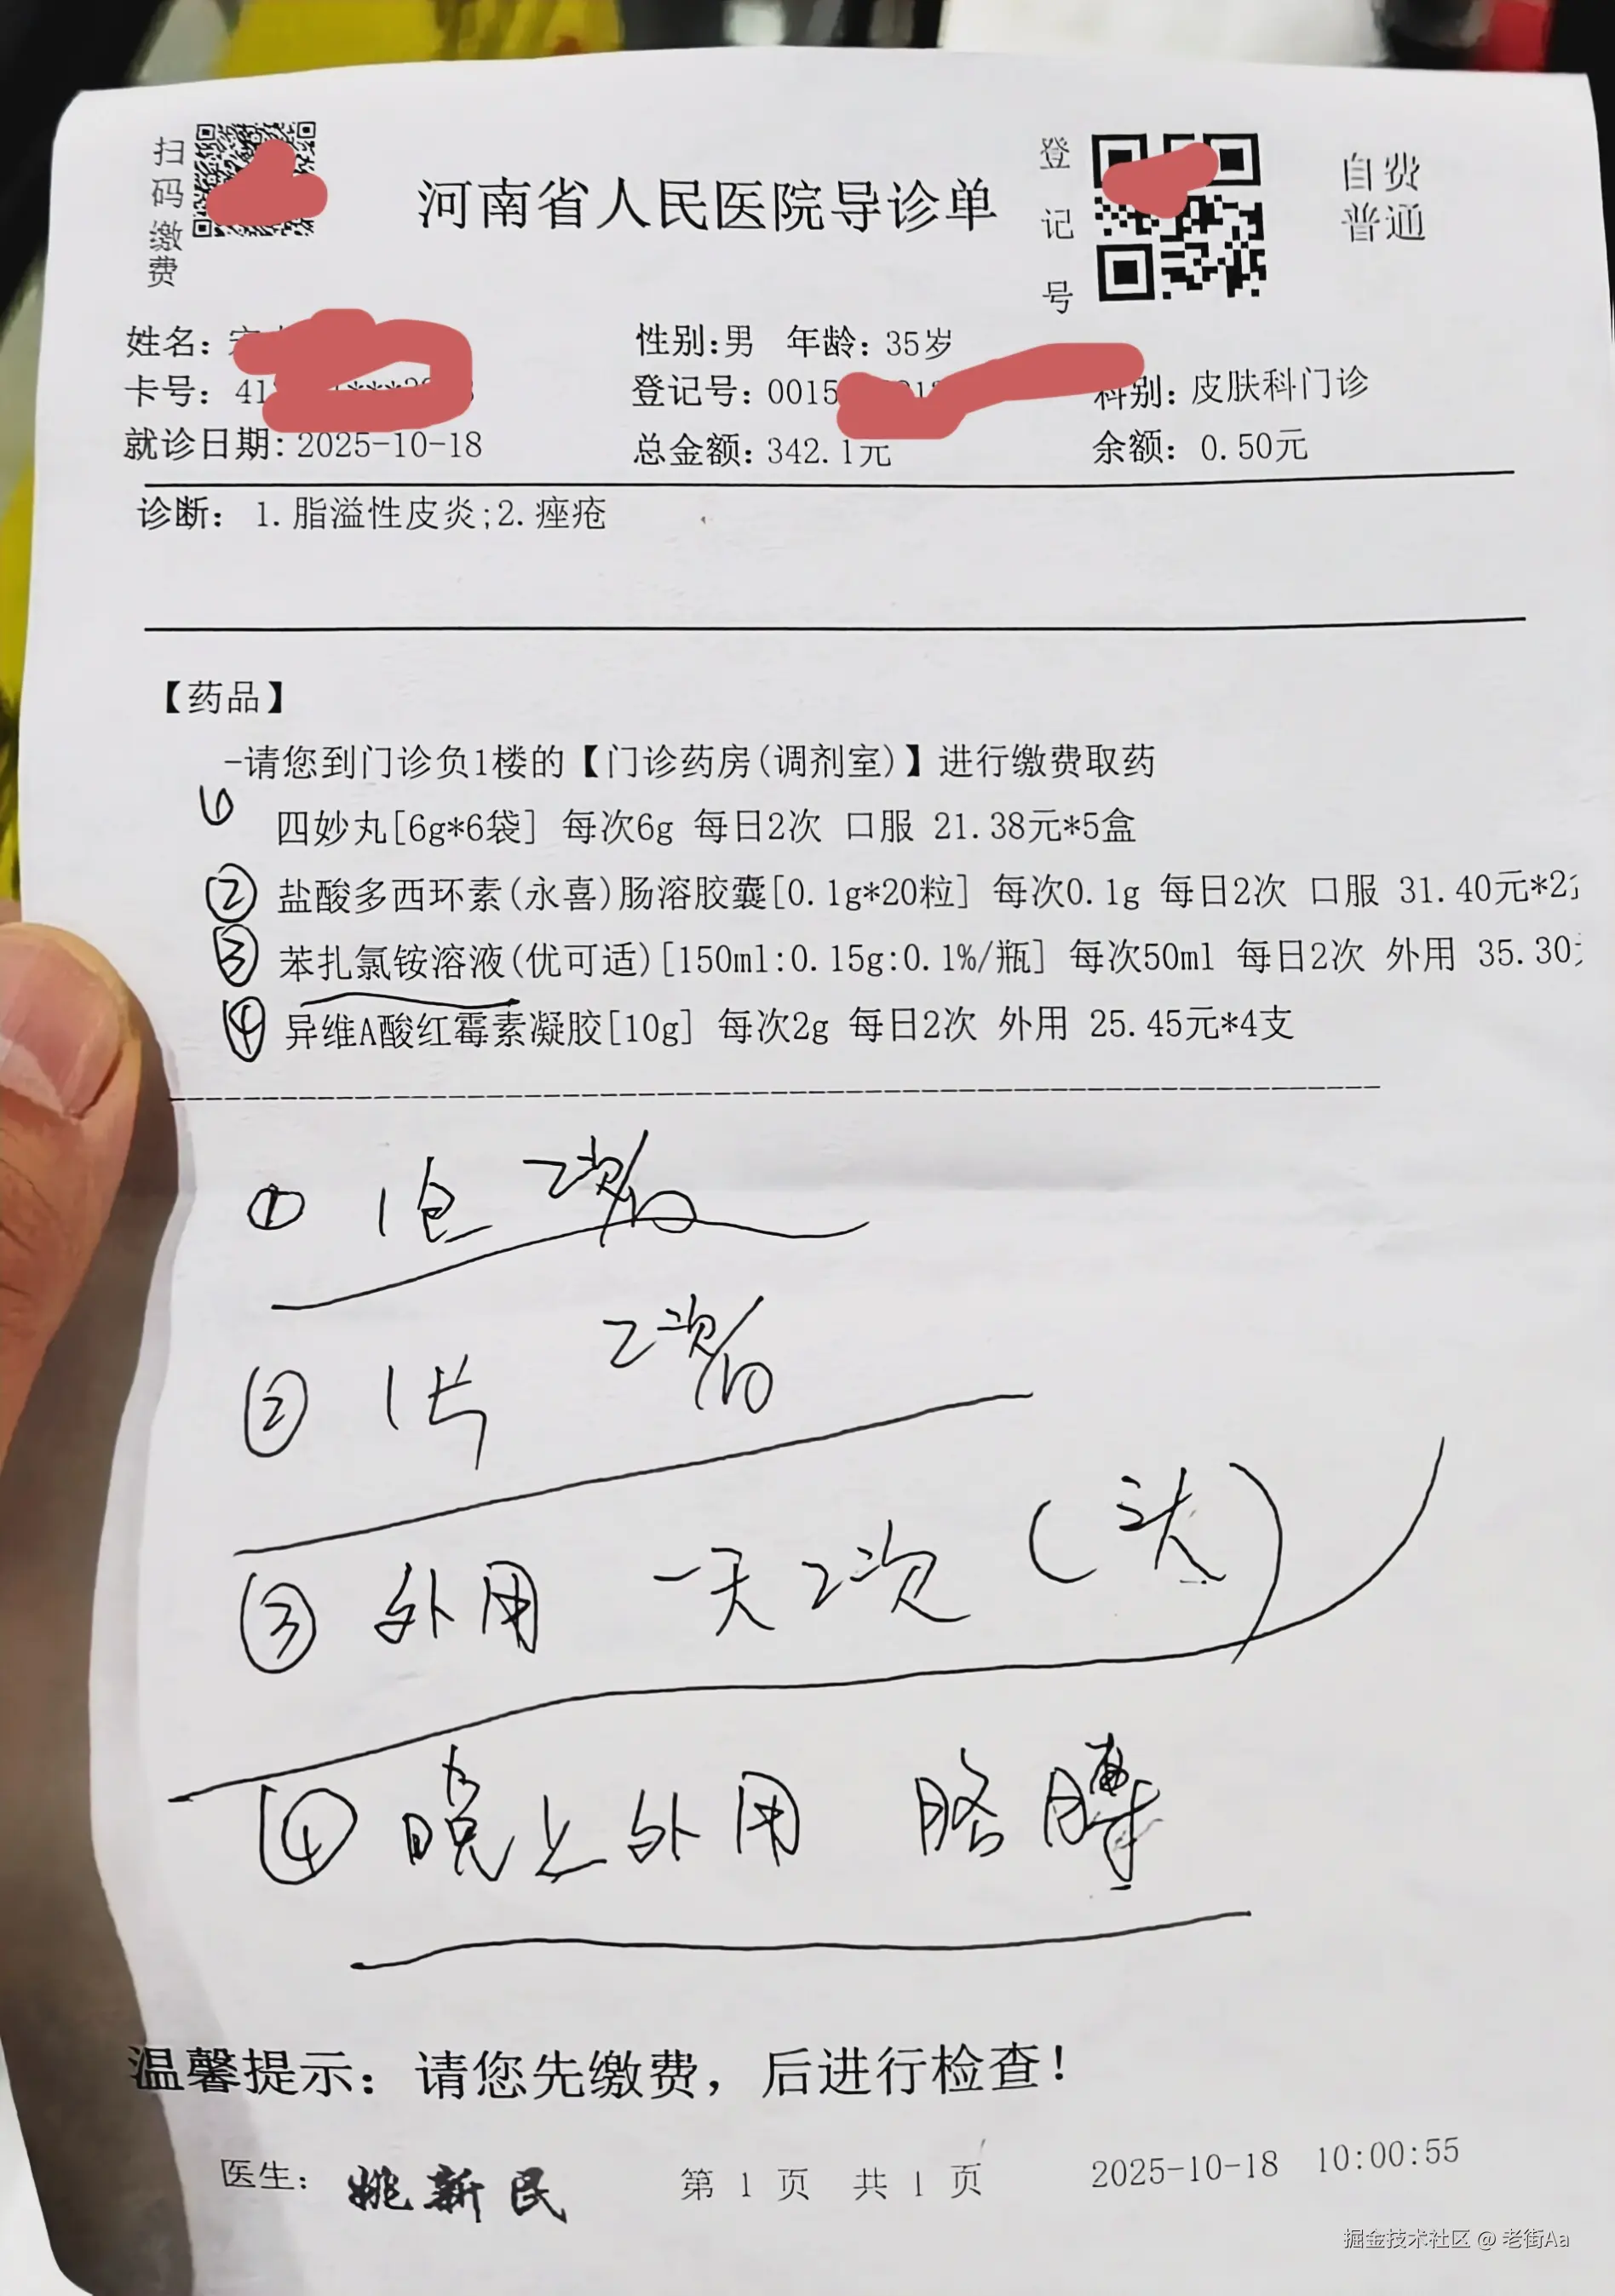 扫码缴费
河南省人民医院导诊单
登记号
自费
普通
姓名:
性别:男 年龄: 35岁
卡号: 41
登记号: 0015
科别: 皮肤科门诊
就诊日期: 2025-10-18
总金额: 342.1元
余额: 0.50元
诊断: 1.脂溢性皮炎;2.痤疮
【药品】
-请您到门诊负1楼的【门诊药房(调剂室)】进行缴费取药
① 四妙丸[6g*6袋] 每次6g 每日2次 口服 21.38元*5盒
② 盐酸多西环素(永喜)肠溶胶囊[0.1g*20粒] 每次0.1g 每日2次 口服 31.40元*2
③ 苯扎氯铵溶液(优可适)[150ml:0.15g:0.1%/瓶] 每次50ml 每日2次 外用 35.30
④ 异维A酸红霉素凝胶[10g] 每次2g 每日2次 外用 25.45元*4支
① 1包 2次/日
② 1片 2次/日
③ 外用 一天2次 (头)
④ 晚上外用 胳膊
温馨提示: 请您先缴费, 后进行检查!
医生: 姚新民
第 1 页 共 1 页
2025-10-18 10:00:55
掘金技术社区 @ 老街Aa